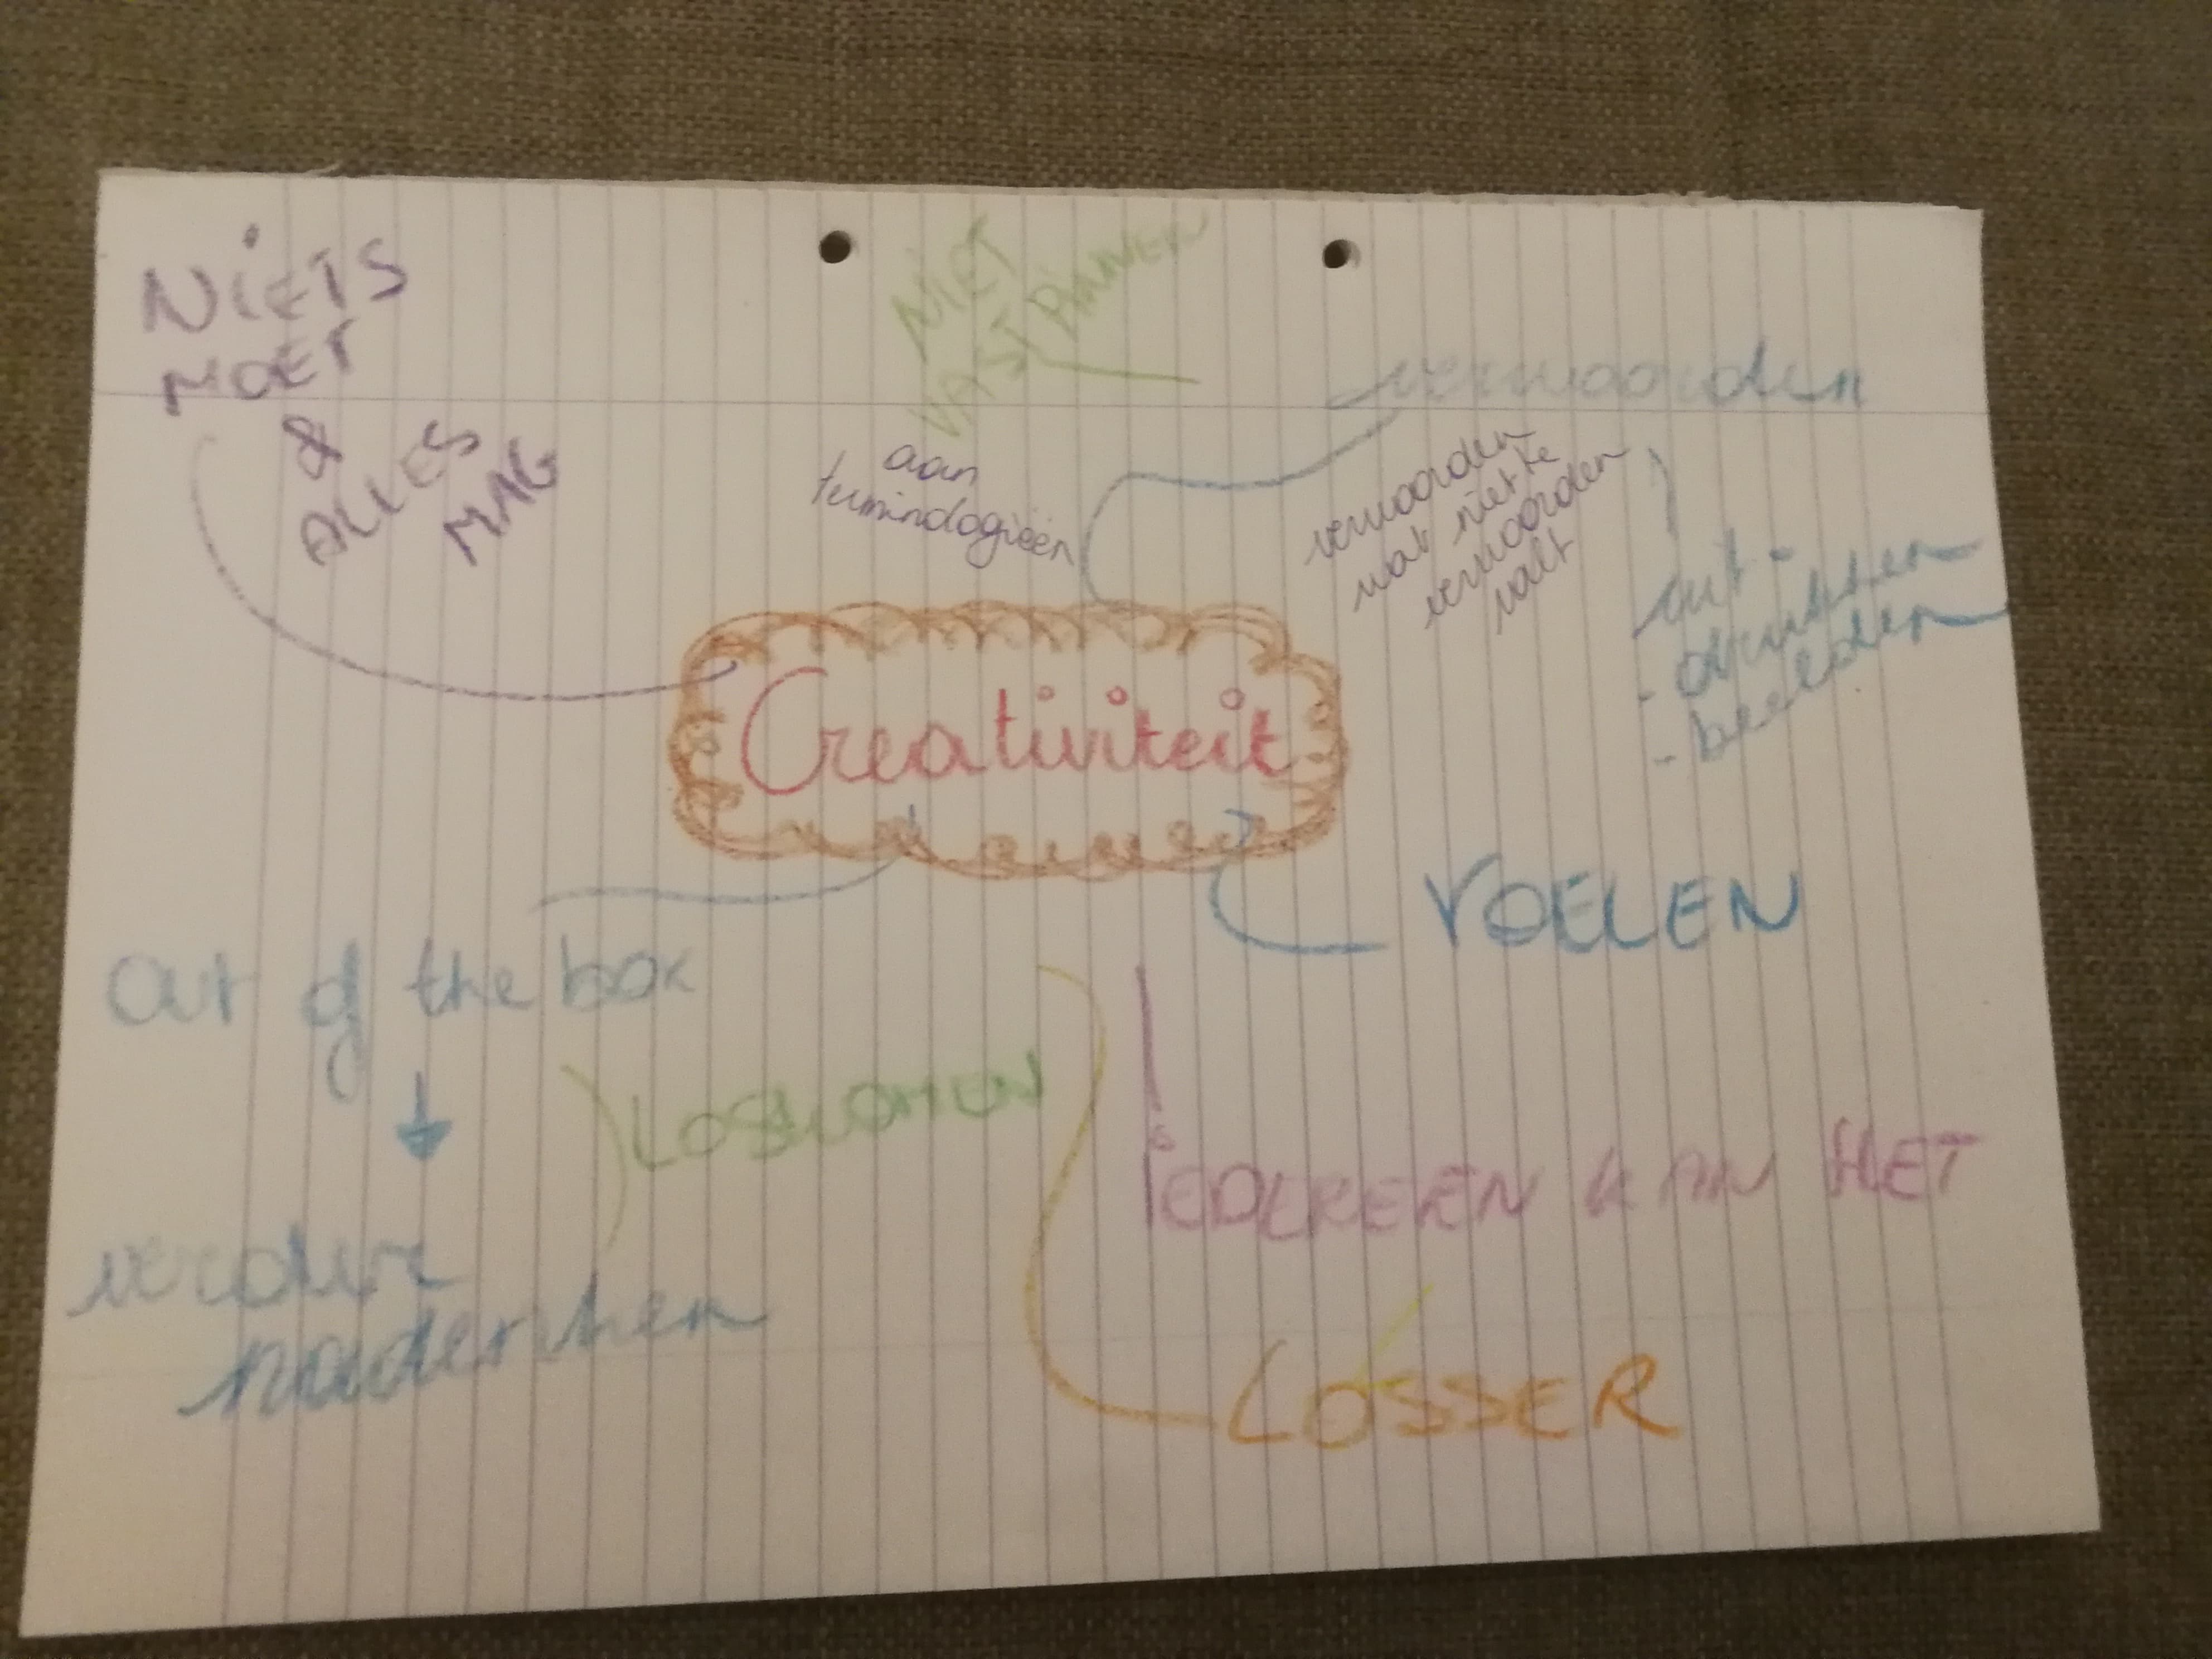 NIETS
MOET
&
ALLES
MAG
NIET
VASTPINNEN
aan
terminologieën
verwoorden
verwoorden
wat niet te
verwoorden
valt
uit-
- drukken
- beelden
Creativiteit
VOELEN
out of the box
LOSKOMEN
verder
nadenken
IEDEREEN KAN HET
LOSSER